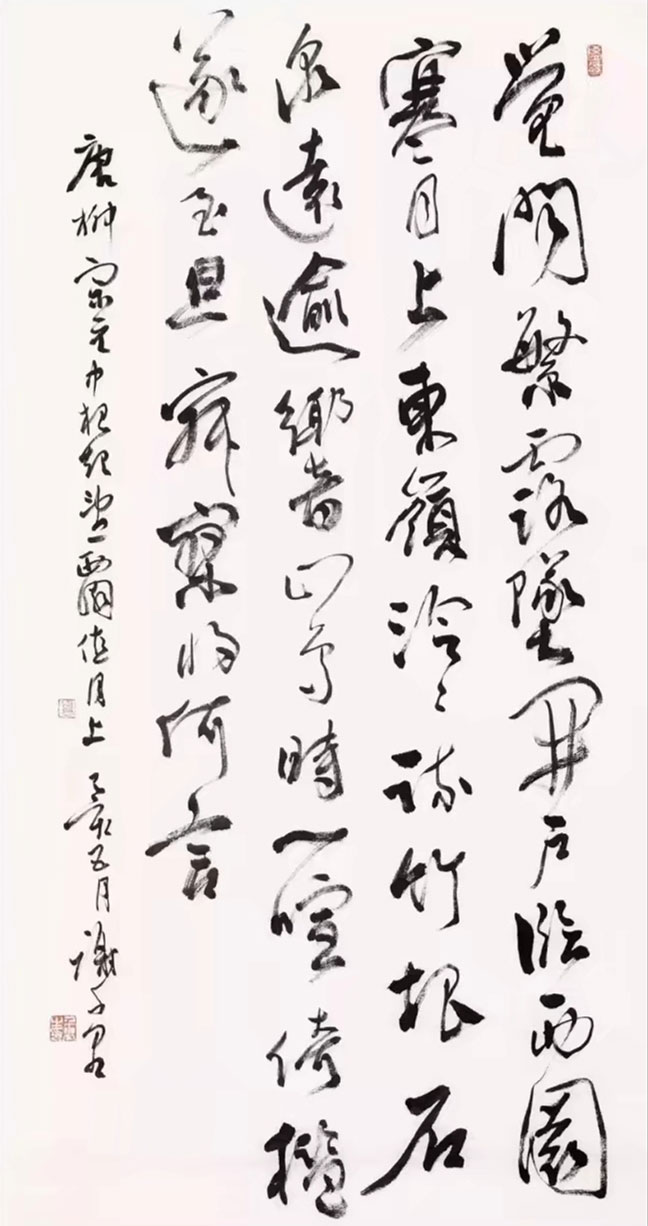 覺聞繁露墜開戶臨西園
寒月上東嶺泠〻疏竹根石
泉遠逾響山鳥時一喧倚楹
遂至旦寂寞將何言
唐柳宗元中夜起望西園值月上 亥五月 謝